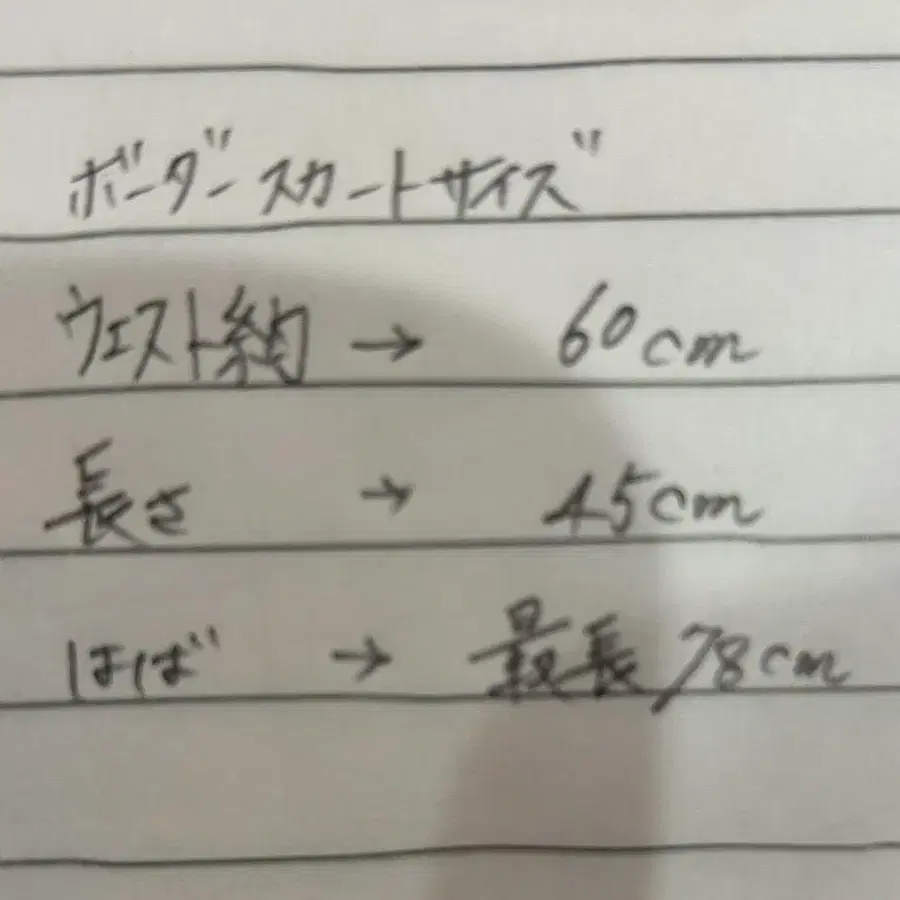 ボーダースカートサイズ
ウエスト約 → 60cm
長さ → 45cm
はば → 最長 78cm